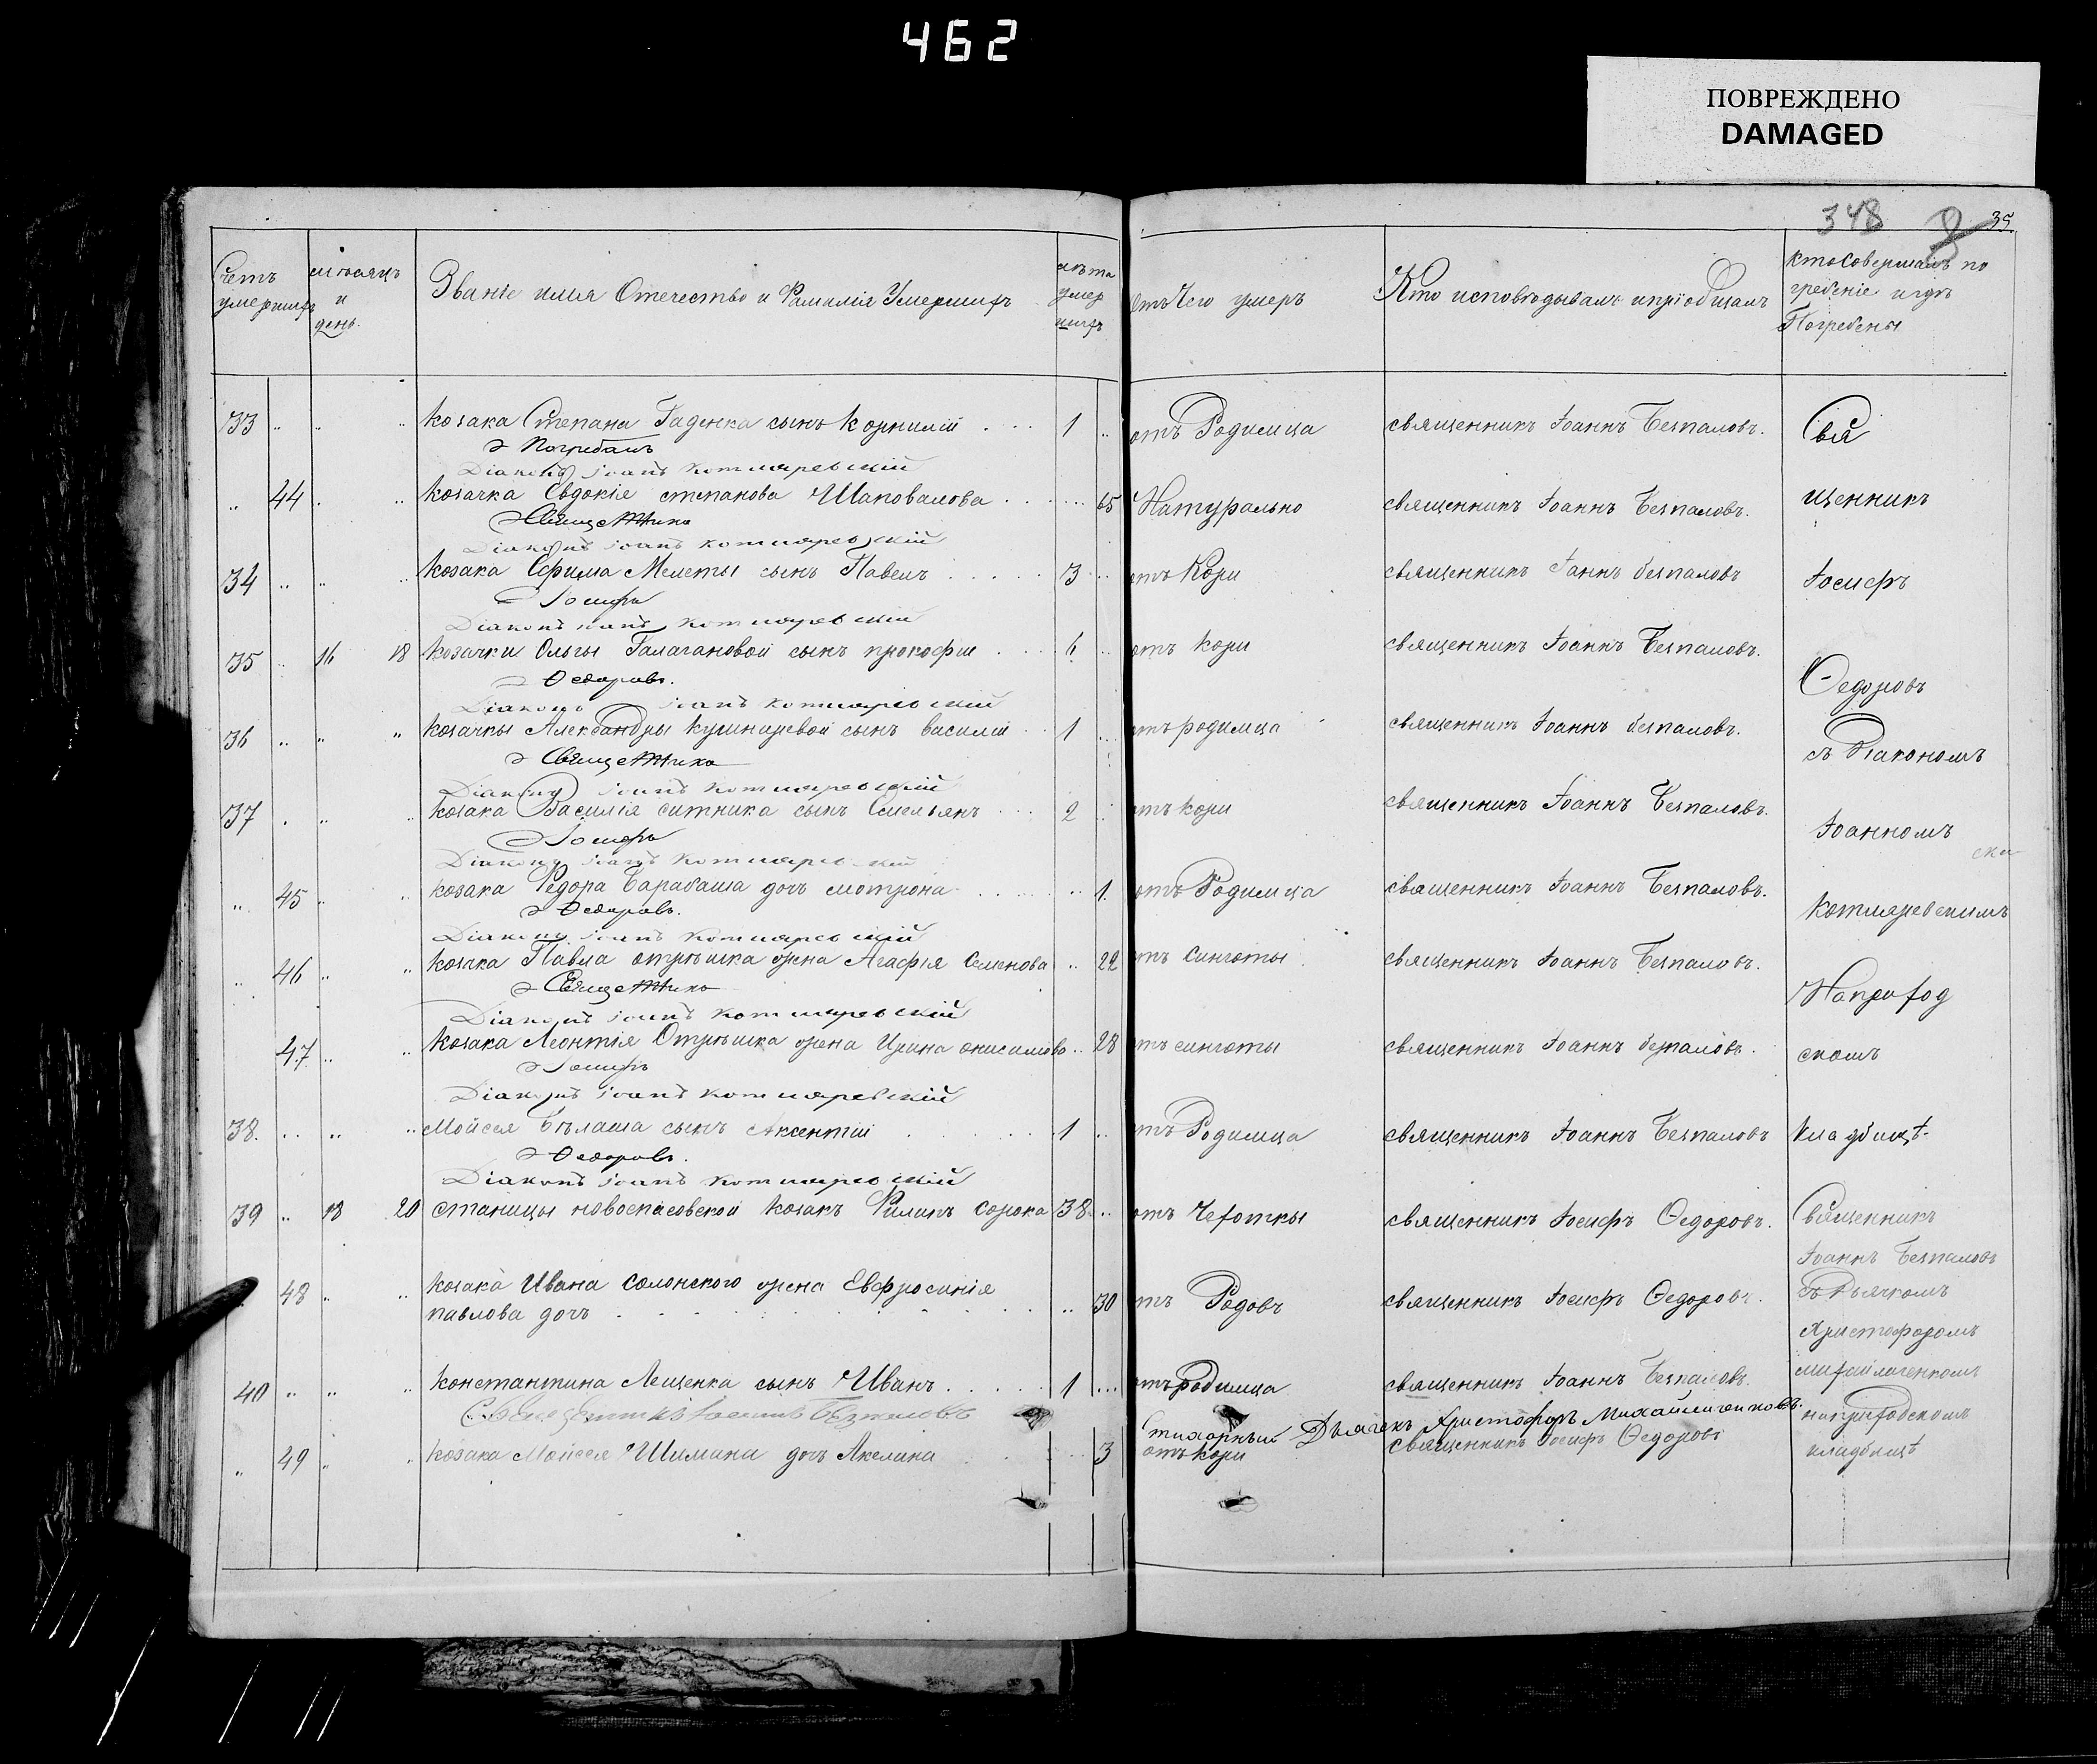 462
ПОВРЕЖДЕНО
DAMAGED
348 35
Счетъ умершихъ
мѣсяцъ и день.
Званіе имя Отечество и Фамилія Умершихъ
лѣта умершихъ
Отъ Чего умеръ
Кто исповѣдывалъ и пріобщалъ
кто Совершалъ погребеніе и гдѣ Погребены
33 козака Степана Гаденка сынъ Корнилій 1 отъ Родимца священникъ Іоаннъ Безпаловъ. Свя
Погребалъ
Діаконъ іоанъ котляревскій
44 козачка Евдокія степанова Шаповалова 65 Натурально священникъ Іоаннъ Безпаловъ. щенникъ
Священникъ
Діаконъ іоанъ котляревскій
34 козака Ефима Мелеты сынъ Павелъ 3 отъ Кори священникъ Іаннъ безпаловъ Іосифъ
Іосифъ
Діаконъ іоанъ котляревскій
35 16 18 козачки Ольги Галагановой сынъ прокофій 6 отъ кори священникъ Іоаннъ Безпаловъ. Ѳедоровъ
Ѳедоровъ.
Діаконъ іоанъ котляревскій
36 козачки Александры кушнировой сынъ василій 1 отъ родимца священникъ Іоаннъ безпаловъ. съ Діакономъ
Священникъ
Діаконъ іоанъ котляревскій
37 козака Василія ситника сынъ Емельянъ 2 отъ кори священникъ Іоаннъ Безпаловъ. Іоанномъ
Іосифъ
Діаконъ іоанъ котляревскій
45 козака Федора Барабаша дочь мотрона 1 отъ Родимца священникъ Іоаннъ Безпаловъ. Котляревскимъ
Ѳедоровъ.
Діаконъ іоанъ котляревскій
46 козака Павла отрѣшка жена Агафія Семенова 22 отъ синюты священникъ Іоаннъ Безпаловъ. На приход
Священникъ
Діаконъ іоанъ котляревскій
47 козака Леонтія Отрѣшка жена Ирина онисимова 28 отъ синюты священникъ Іоаннъ безпаловъ. скомъ
Іосифъ
Діаконъ іоанъ котляревскій
38. Мойсея Бѣлаша сынъ Аксентій 1 отъ Родимца священникъ Іоаннъ Безпаловъ кладбищѣ.
Ѳедоровъ.
Діаконъ іоанъ котляревскій
39 18 20 станицы новоспасовской козакъ Филипъ сорока 38 отъ Чехотки священникъ Іосифъ Ѳедоровъ. Священникъ
Іоаннъ Безпаловъ
48 козака Ивана солонского жена Евфросинія
павлова дочь 30 отъ Родовъ священникъ Іосифъ Ѳедоровъ. съ Дьячкомъ
Христофоромъ
40 константина Лещенка сынъ Иванъ 1 отъ родимца священникъ Іоаннъ Безпаловъ. михайличенкомъ
Священникъ Іоаннъ Безпаловъ Стихарный Дьячекъ Христофоръ Михайличенковъ. на приходскомъ
49 козака Мойсея Шимана дочь Акелина 3 отъ кори священникъ Іосифъ Ѳедоровъ кладбищѣ